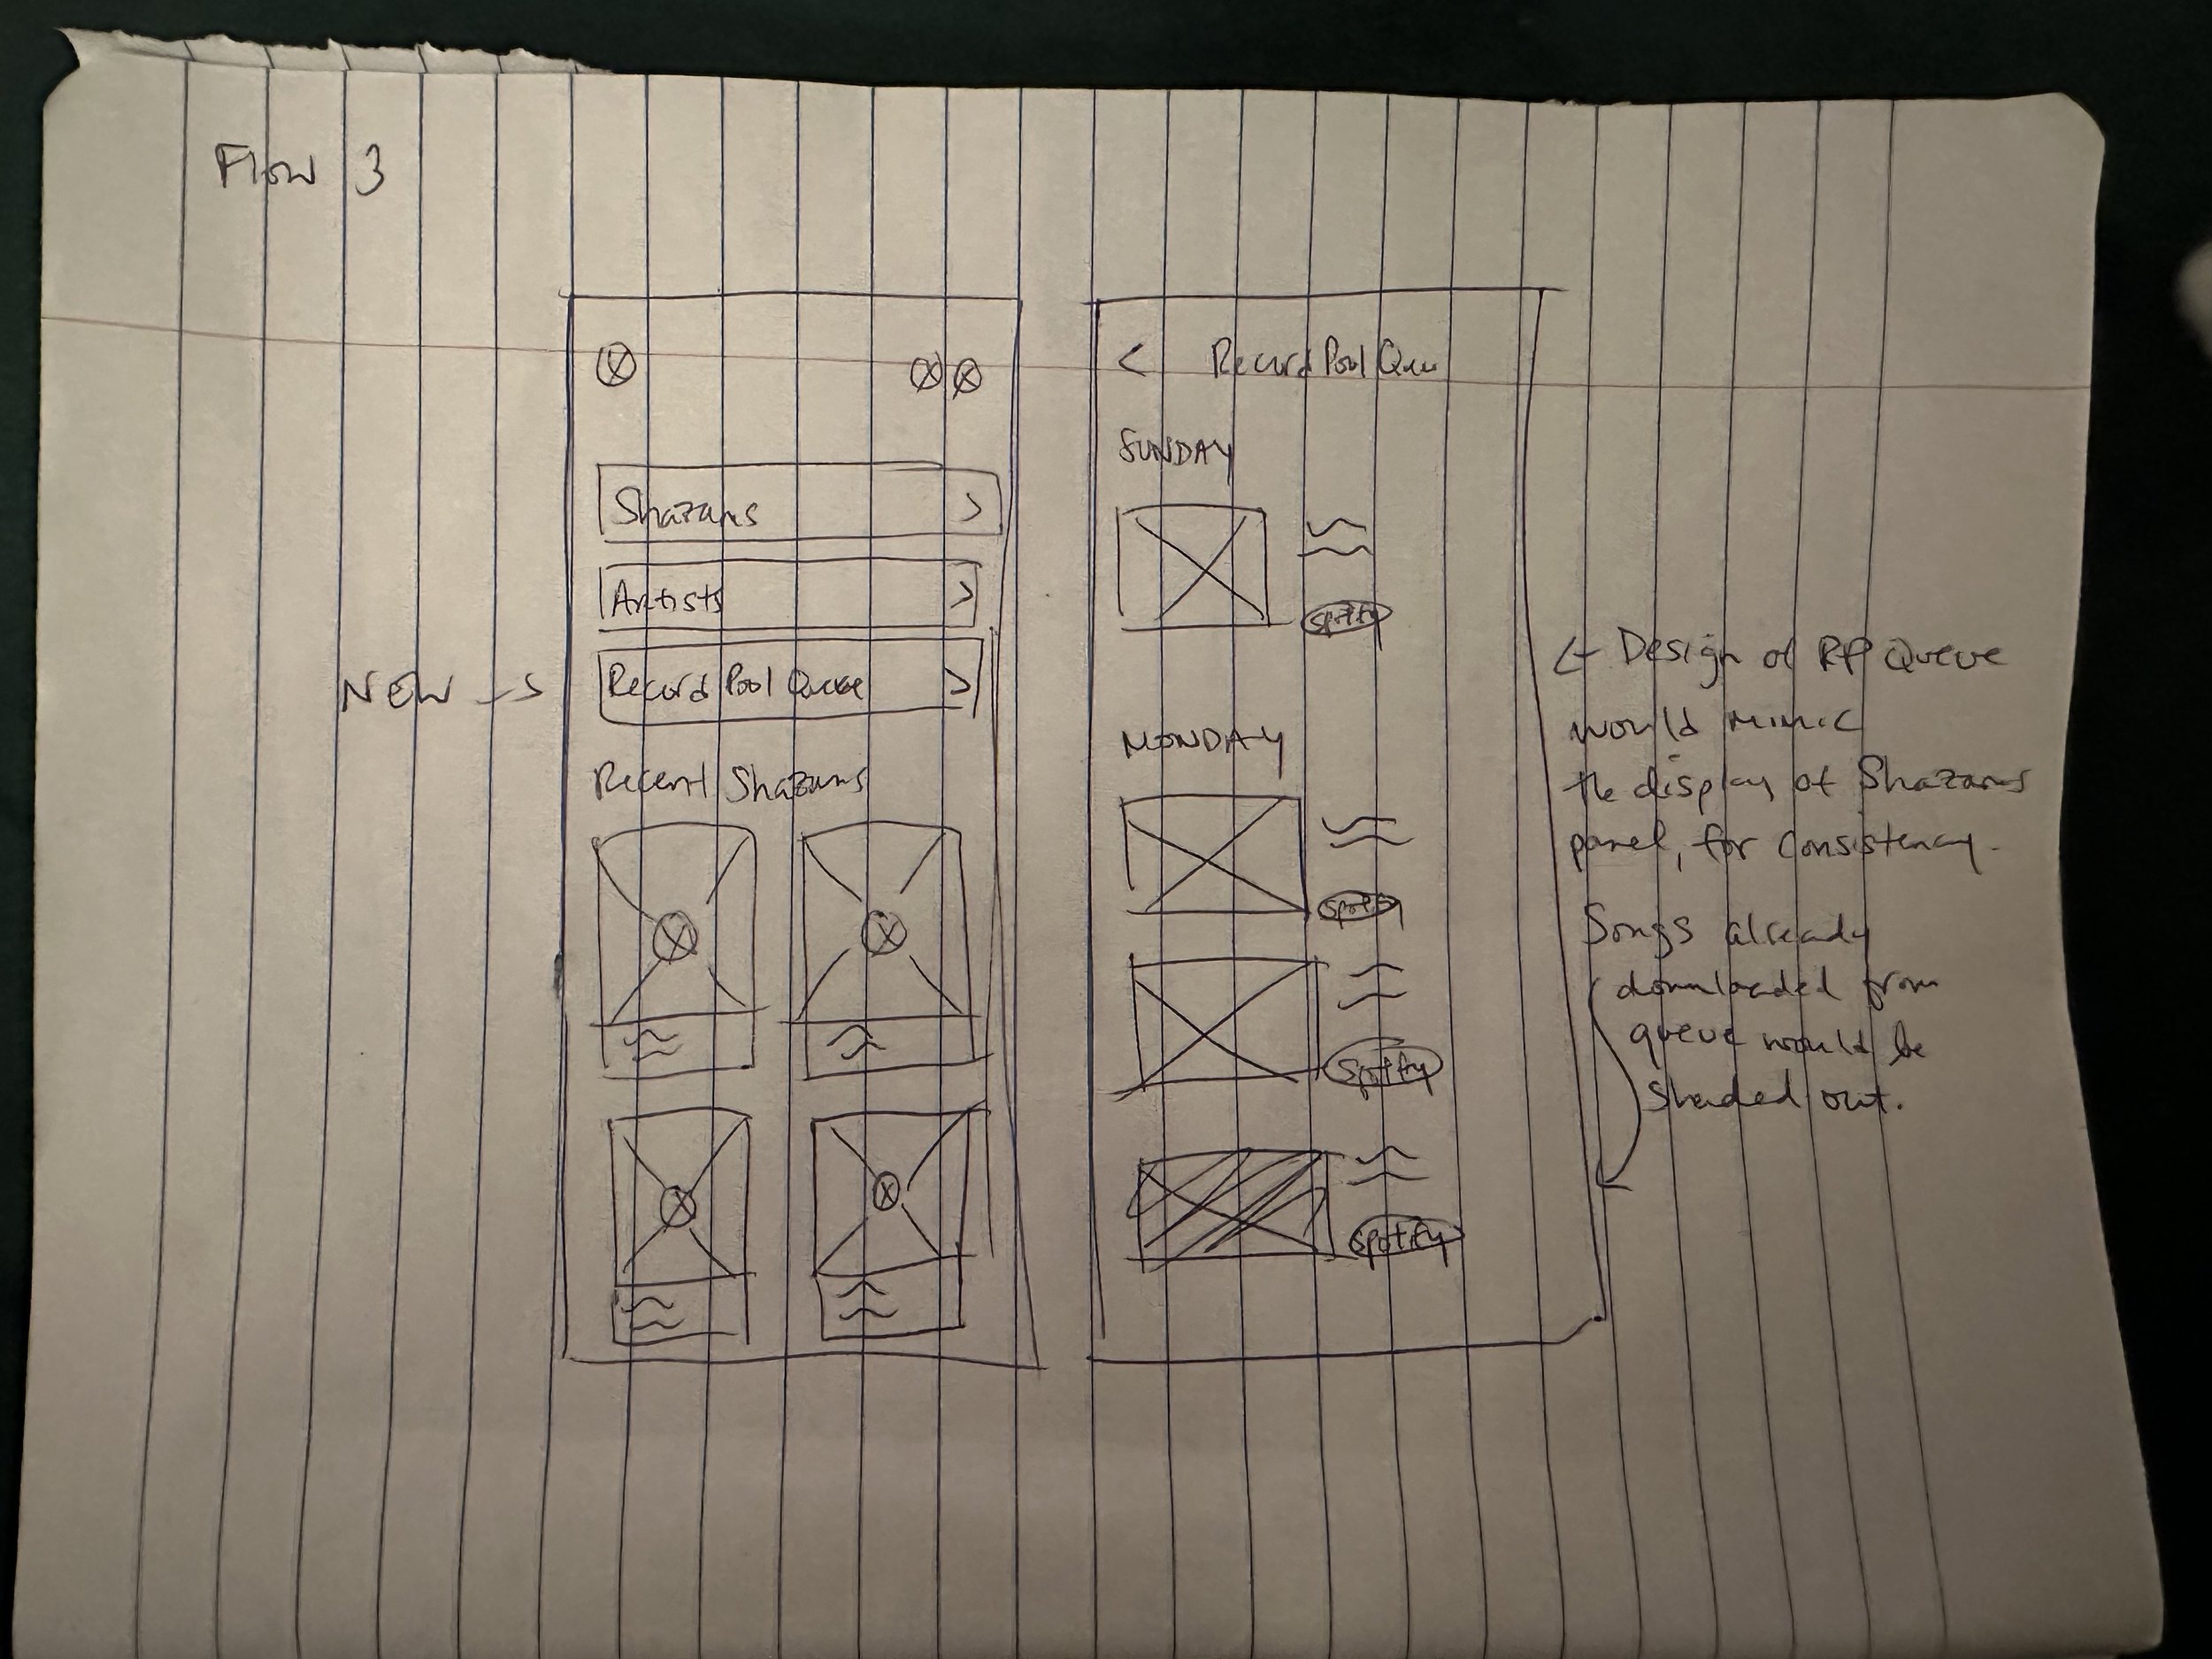 Flow 3
Shazams >
Artists >
NEW → Record Pool Queue >
Recent Shazams
< Record Pool Queu
SUNDAY
Spotify
MONDAY
Spotify
Spotify
Spotify
← Design of RP Queue
would mimic
the display of Shazams
panel, for consistency.
Songs already
downloaded from
queue would be
shaded out.